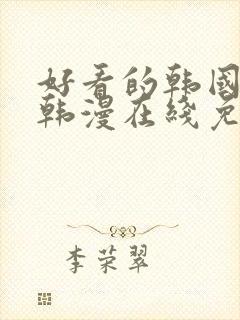 好看的韩国
韩漫在线免
李荣翠